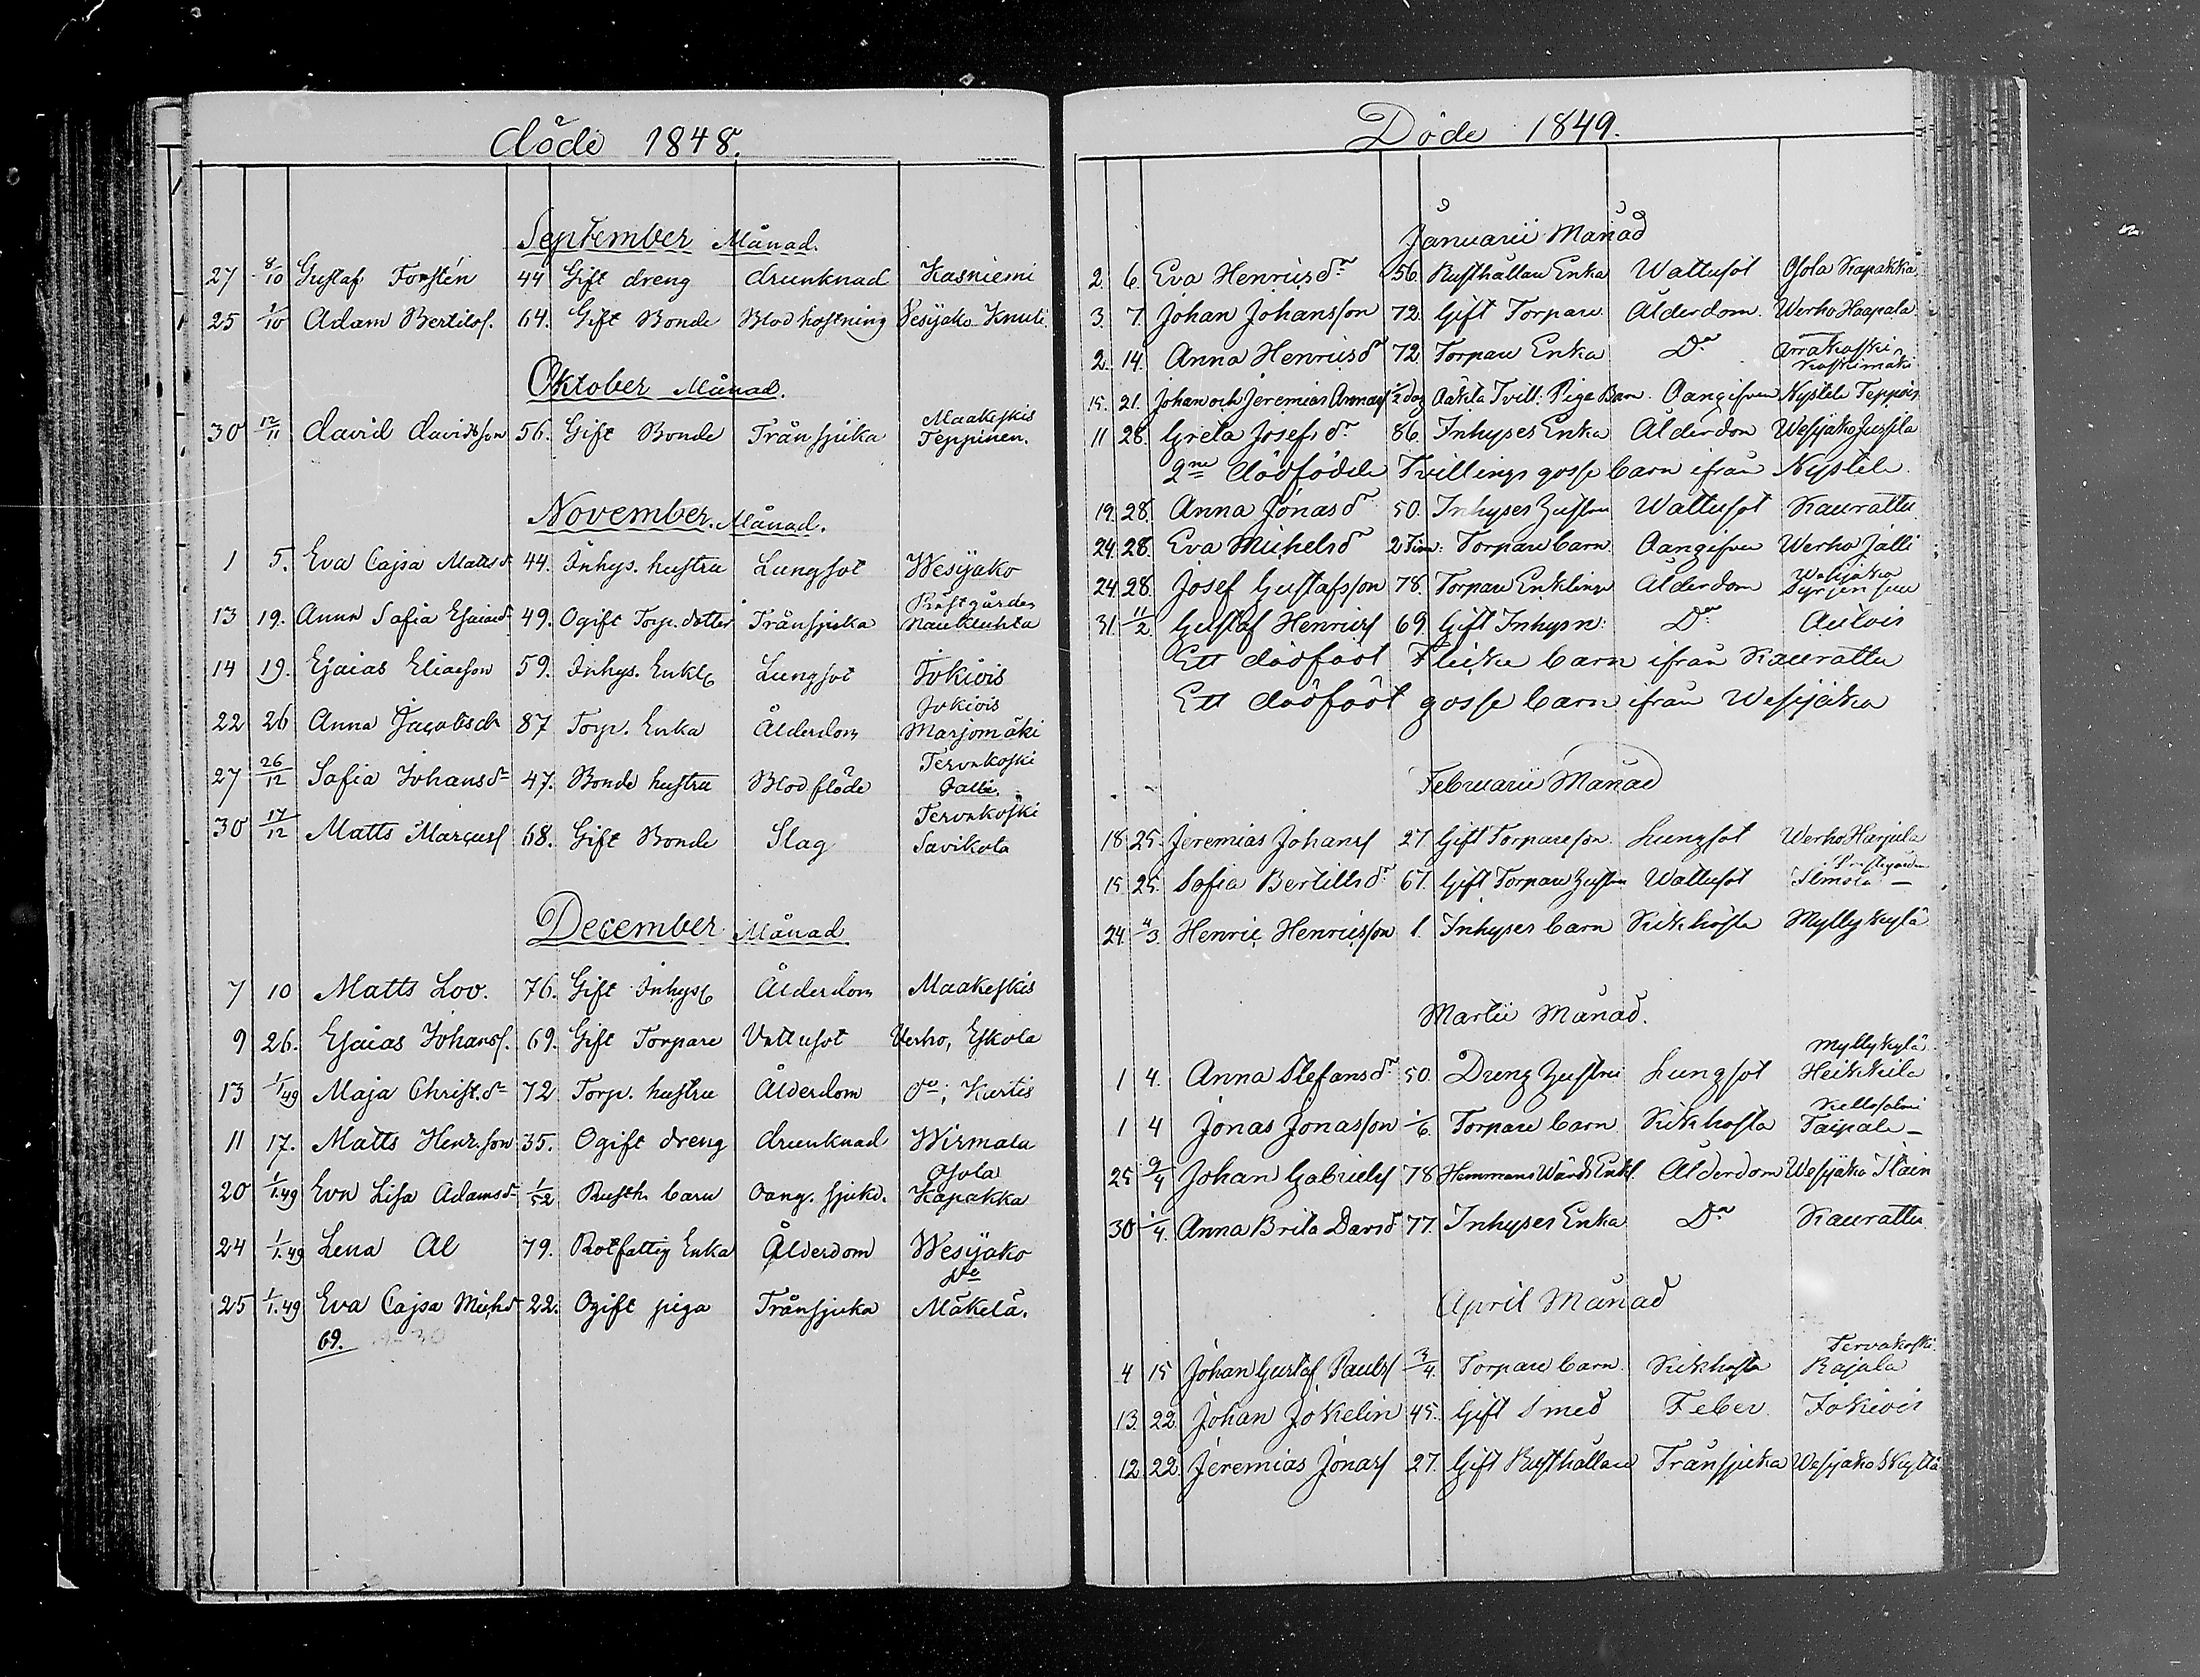 döde 1848.
September Månad.
27 8/10 Gustaf Forstén 44 Gift dreng drunknad Kasniemi
25 9/10 Adam Bertilss. 64. Gift Bonde Blod hostning Vesijako Knuti
Oktober Månad.
Maakeskis
30 12/11 David Davidsson 56. Gift Bonde Trånsjuka Teppinen.
November Månad.
1 5. Eva Cajsa Mattsdr 44. Inhys. hustru Lungsot Wesijako
Prästgården
13 19. Anna Safia Esaiasdr 49. Ogift Torp. dotter Trånsjuka Naukluhta
14 19. Esaias Eliasson 59. Inhys. Enkl. Lungsot Jokiois
Jokiois
22 26 Anna Jacobsdr 87 Torp. Enka Ålderdom Marjomäki
Tervakoski
27 26/12 Safia Johansdr 47. Bonde hustru Blodflöde Jalli.
Tervakoski
30 17/12 Matts Marcuss 68. Gift Bonde Slag Savikola
December Månad
7 10 Matts Lov. 76. Gift Inhys. Ålderdom Maakeskis
9 26. Esaias Johanss. 69. Gift Torpare Vattusot Verho, Eskola
13 1/1 49 Maja Christ.dr 72 Torp. hustru Ålderdom do; Kurtis
11 17. Matts Henr.son 35. Ogift dreng drunknad Wirmala
Osola
20 1/1.49 Eva Lisa Adamsdr 1/52 Rusth. barn Oang. sjukd. Kapakka
24 1/1.49 Lena Al 79. Rotfattig Enka Ålderdom Wesijako
do
25 1/1.49 Eva Cajsa Michdr 22. Ogift piga Trånsjuka Mäkelä.
69.
Döde 1849.
Januarii Månad
2. 6. Eva Henricsdr 56. Rusthållare Enka Wattusot Osola Kapakka
3. 7. Johan Johansson 72 Gift Torpare Ålderdom Werho Haapala
2. 14. Anna Henricsdr 72 Torpare Enka Do Arrakoski
Koskimäki
15. 21. Johan och Jeremias Annass 1/2 dag Oäkta Tvill: Pige Barn Oangifven Nystele Teppois
11 28. Greta Josefsdr 86. Inhyses Enka Ålderdom Wesijako Jussila
2ne dödfödde Tvillings gosse barn ifrån Nystele.
19. 28. Anna Jonasdr 50. Inhyses Hustru Wattusot Kaurattu
24. 28. Eva Michelsdr 2 Tim: Torpare barn Oangifven Werho Jalli
Wesijako
24. 28. Josef Gustafsson 78. Torpare Enkling Ålderdom
31. 11/2. Gustaf Henricss 69. Gift Inhysn: Do Aulois
Ett dödfödt Flicke barn ifrån Kaurattu
Ett dödfödt gosse barn ifrån Wesijako
Februarii Månad
18 25. Jeremias Johanss 27 Gift Torpareson Lungsot Werho Harjula
Prästgården
15. 25. Sofia Bertillsdr 67. Gift Torpare Hustru Wattusot Ilmola —
24 4/3. Henric Henricsson 1. Inhyses barn Kikhosta Myllykylä
Martii Månad.
Myllykylä
1 4. Anna Stefansdr 50. Dreng Hustru Lungsot Heikkilä
Kellosalmi
1 4 Jonas Jonasson 1/6. Torpare barn Kikhosta Taipale —
25 9/4 Johan Gabrielss 78 Hemmans Wärds Enkl. Ålderdom Wesijako Ilain
30 1/4. Anna Brita Davidr 77. Inhyses Enka Do Kaurattu
April Månad
Tervakoski
4 15 Johan Gustaf Paulss 3/4. Torpare barn. Kikhosta Rajala
13. 22. Johan Jokelin 45. Gift Smed Feber Jokiois
12. 22. Jeremias Jonass 27. Gift Rusthållare Trånsjuka Wesijako Skyttä